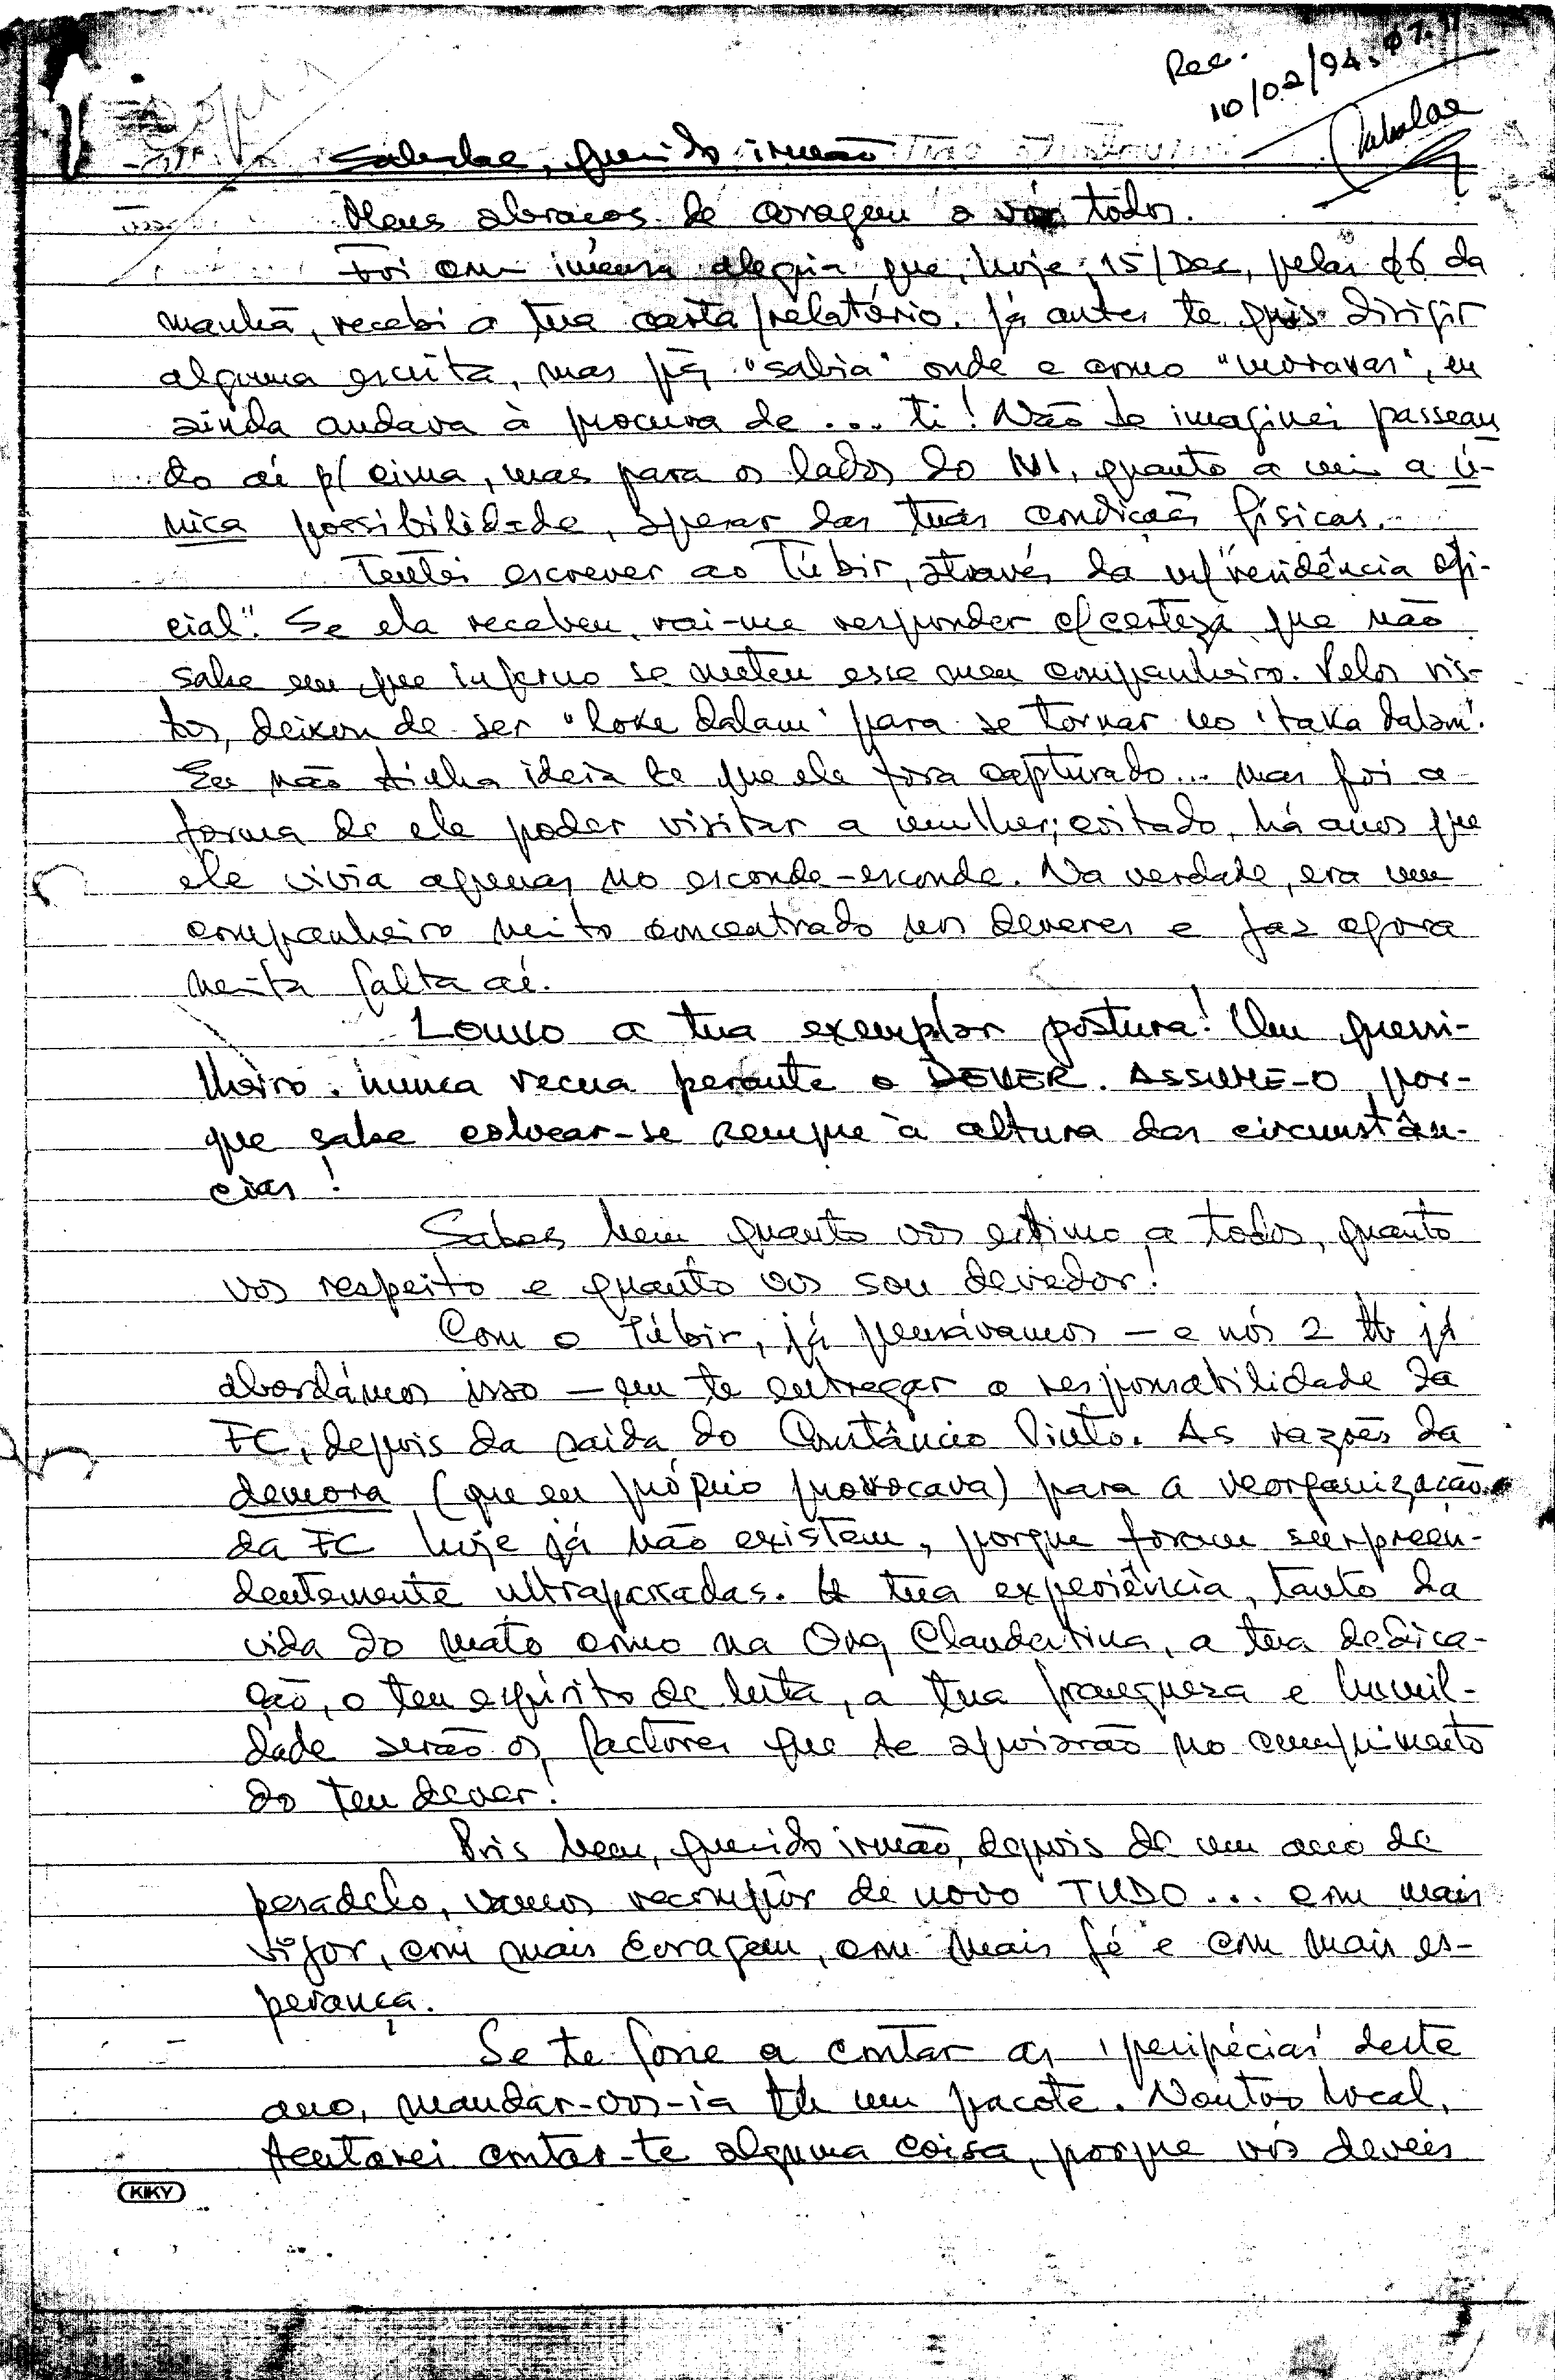 Copia
Rec.
10/02/94. 07.11
Sabalae
Sabalae, querido irmão
Meus abraços de coragem a vós todos.
Foi com imensa alegria que, hoje, 15/Dez, pelas 06 da
manhã, recebi a tua carta/relatório. Já antes te quis dirigir
alguma escrita, mas já "sabia" onde e como "moravas", eu
ainda andava à procura de ... ti! Não te imaginei passean
do aí p/ cima, mas para os lados do M, quanto a mim a ú-
nica possibilidade, apesar das tuas condições físicas.
Tentei escrever ao Túbir, através da m/ "residência ofi-
cial". Se ela recebeu, vai-me responder c/ certeza que não
sabe em que inferno se meteu esse meu companheiro. Pelos vis-
tos, deixou de ser "loke dalam" para se tornar no 'taka dalam'.
Eu não tinha ideia de que ele fora capturado... mas foi a
forma de ele poder visitar a mulher; coitado, há anos que
ele vivia apenas no esconde-esconde. Na verdade, era um
companheiro muito concentrado nos deveres e faz agora
muita falta aí.
Louvo a tua exemplar postura! Um guerri-
lheiro nunca recua perante o DEVER. ASSUME-O, por-
que sabe colocar-se sempre à altura das circunstân-
cias!
Sabes bem quanto vos estimo a todos, quanto
vos respeito e quanto vos sou devedor!
Com o Túbir, já pensávamos — e nós 2 tb já
abordámos isso — em te entregar a responsabilidade da
FC, depois da saída do Constâncio Pinto. As razões da
demora (que eu próprio provocava) para a reorganização
da FC hoje já não existem, porque foram surpreen-
dentemente ultrapassadas. A tua experiência, tanto da
vida do mato como na Org Clandestina, a tua dedica-
ção, o teu espírito de luta, a tua franqueza e humil-
dade serão os factores que te apoiarão no cumprimento
do teu dever!
Pois bem, querido irmão, depois de um ano de
pesadelo, vamos recompôr de novo TUDO... com mais
vigor, com mais coragem, com mais fé e com mais es-
perança.
Se te fosse a contar as 'peripécias' deste
ano, mandar-vos-ia tb um pacote. Noutro local,
tentarei contar-te alguma coisa, porque vós deveis
KIKY